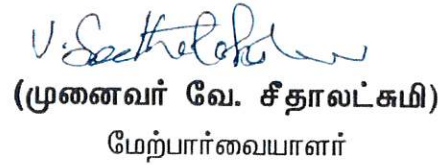 V. Seethalakshmi
(முனைவர் வே. சீதாலட்சுமி)
மேற்பார்வையாளர்